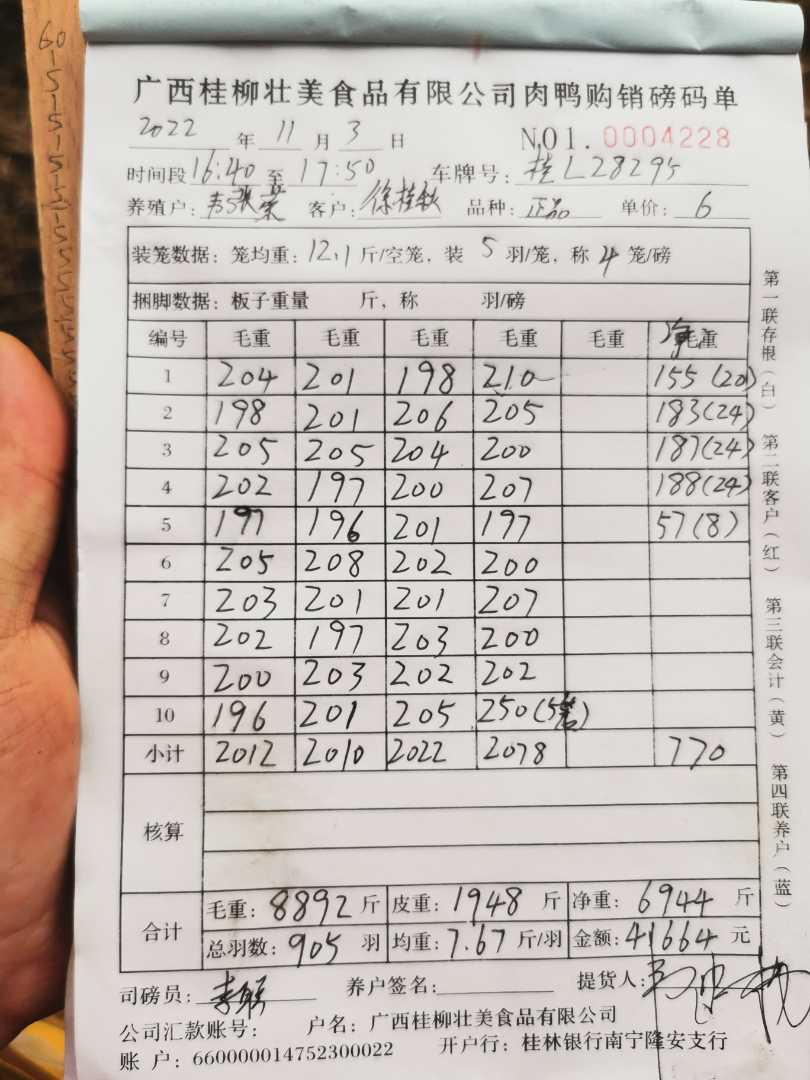 60-5-5-5-5-5-5
广西桂柳壮美食品有限公司肉鸭购销磅码单
2022 年 11 月 3 日 NO1. 0004228
时间段 16:40 至 17:50 车牌号: 桂L28295
养殖户: 客户: 徐桂钦 品种: 正品 单价: 6
装笼数据: 笼均重: 12.1 斤/空笼, 装 5 羽/笼, 称 4 笼/磅
捆脚数据: 板子重量 斤, 称 羽/磅
编号 毛重 毛重 毛重 毛重 毛重 净重
1 204 201 198 210 155(20)
2 198 201 206 205 183(24)
3 205 205 204 200 187(24)
4 202 197 200 207 188(24)
5 197 196 201 197 57(8)
6 205 208 202 200
7 203 201 201 207
8 202 197 203 200
9 200 203 202 202
10 196 201 205 250(5笼)
小计 2012 2010 2022 2078 770
核算
合计
毛重: 8892 斤 皮重: 1948 斤 净重: 6944 斤
总羽数: 905 羽 均重: 7.67 斤/羽 金额: 41664 元
司磅员: 养户签名: 提货人:
公司汇款账号: 户名: 广西桂柳壮美食品有限公司
账 户: 660000014752300022 开户行: 桂林银行南宁隆安支行
第一联存根(白) 第二联客户(红) 第三联会计(黄) 第四联养户(蓝)